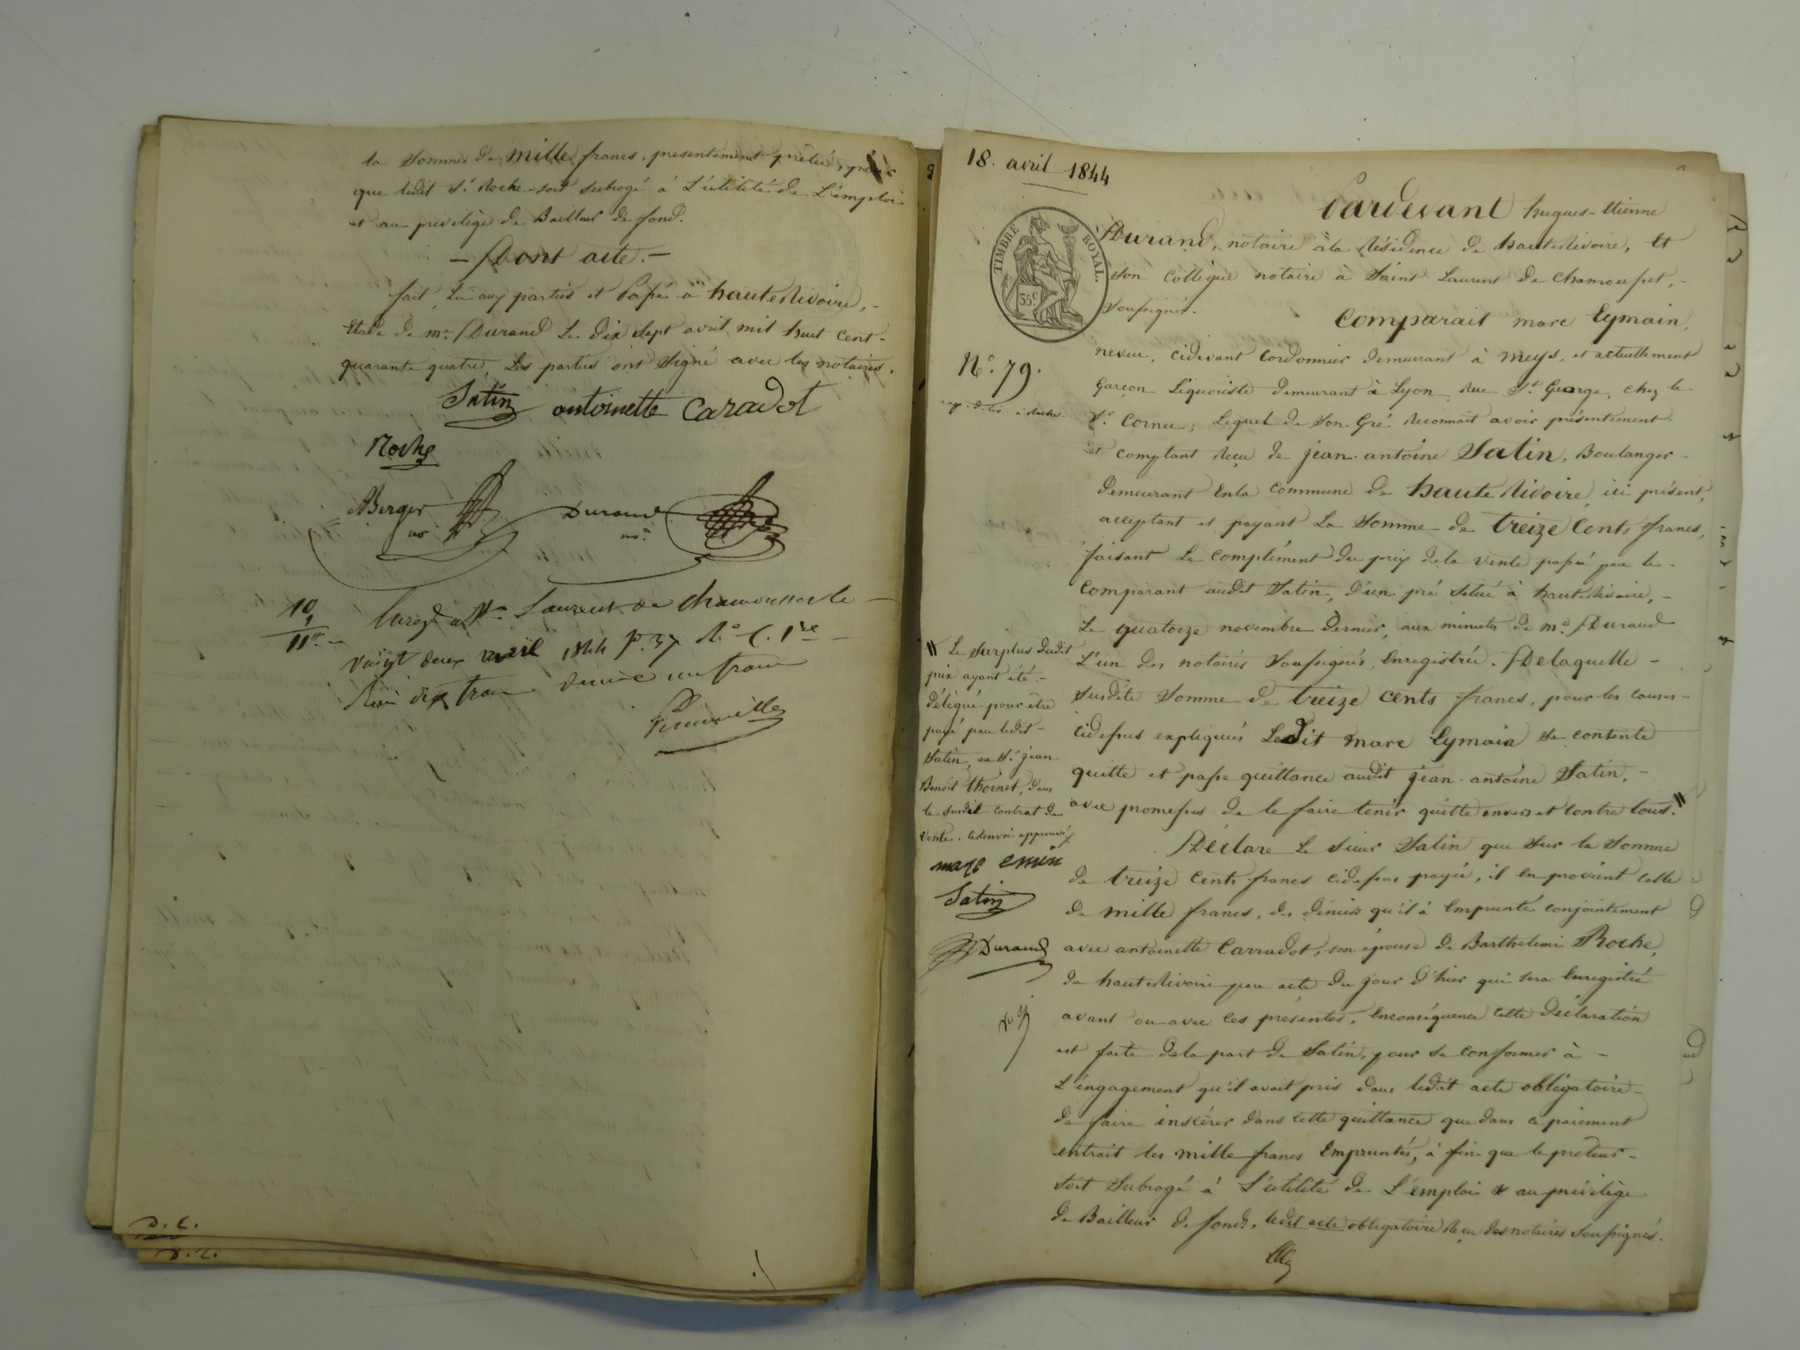 la somme de mille francs, presentement prêtée, pour
que ledit Sr. Roche soit subrogé à L'utilité de L'emploi
et au privilège de Bailleur de fond.
— Dont acte. —
fait, Lu aux parties et Passé à hauterivoire, -
Etude de me. Durand Le dix sept avril mil huit cent -
quarante quatre, Les parties ont signé avec les notaires.
Satin antoinette caradot
Roche
Berger
no
Durand
no.re
10
1
11
Enregé à St. Laurent de chamousset le
vingt deux avril 1844 f.° 37 R.° C. 1re
Reçu dix francs decime un franc
D. C.
D. C.
18. avril 1844
TIMBRE ROYAL.
35c
Pardevant hugues-Etienne
Durand, notaire à la Résidence de hauterivoire, Et
son collègue notaire à Saint Laurent de Chamousset, -
Soussignés.
Comparait marc Eymain,
neveu, cidevant cordonnier demeurant à meys, et actuellement
N.° 79.
garçon Liquoriste demeurant à Lyon, rue St. George, chez le
Sr. Cornu; Lequel de son Gré Reconnait avoir présentement
et comptant Reçu de jean-antoine Satin, Boulanger -
demeurant En la commune de hauterivoire, ici présent,
acceptant et payant La somme de treize Cents francs,
faisant Le complément du prix de la vente passée par le -
comparant audit Satin, d'un pré situé à hauterivoire, -
Le quatorze novembre dernier, aux minutes de me. Durand
L'un des notaires soussignés, Enregistrée. De laquelle -
susdite somme de treize cents francs, pour les causes -
cidessus expliquées Ledit marc Eymain se contente
quitte et passe quittance audit jean-antoine Satin, -
avec promesses de le faire tenir quitte envers et contre tous. //
// Le surplus dudit
prix ayant été -
délégué pour être
payé par ledit -
Satin, au Sr. jean
Benoit thoinet, dans
le susdit contrat de
vente.
marc emin
Satin
Durand
Déclare Le sieur Satin que sur la somme
de treize cents francs cidessus payée, il en provient celle
de mille francs, des deniers qu'il à Emprunté conjointement
avec antoinette Carradot, son épouse de Barthelemi Roche,
de hauterivoire par acte du jour d'hier qui sera Enregistré
avant ou avec ces présentes, Enconséquence cette déclaration
est faite dela part de Satin, pour se conformer à -
L'engagement qu'il avait pris dans ledit acte obligatoire -
de faire insérer dans cette quittance que dans ce paiement
entrait les mille francs Empruntés, à fin que le prêteur -
soit subrogé à L'utilité de L'emploi & au privilège
de Bailleur de fonds, ledit acte obligatoire Reçu des notaires soussignés.